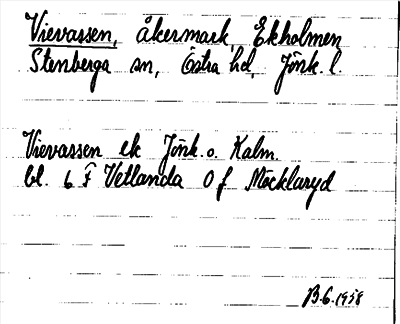 Vievassen, åkermark, Ekholmen
Stenberga sn, Östra hd, Jönk. l.
Vievassen ek Jönk. o. Kalm.
bl. 6 F Vetlanda O f Möcklaryd
B.G. 1958